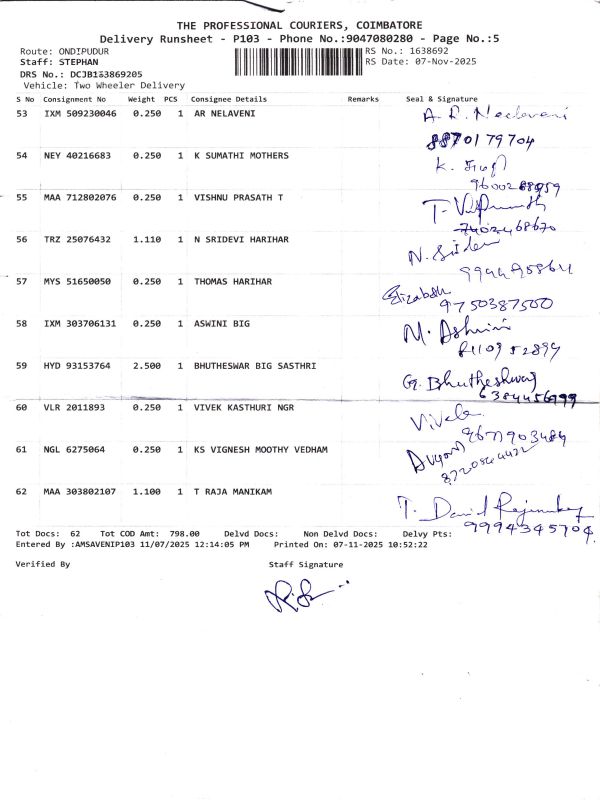 THE PROFESSIONAL COURIERS, COIMBATORE
Delivery Runsheet - P103 - Phone No.:9047080280 - Page No.:5
Route: ONDIPUDUR RS No.: 1638692
Staff: STEPHAN RS Date: 07-Nov-2025
DRS No.: DCJB133869205
Vehicle: Two Wheeler Delivery
S No Consignment No Weight PCS Consignee Details Remarks Seal & Signature
53 IXM 509230046 0.250 1 AR NELAVENI A. R. Neelaveni
8870179704
54 NEY 40216683 0.250 1 K SUMATHI MOTHERS K.
55 MAA 712802076 0.250 1 VISHNU PRASATH T T.
56 TRZ 25076432 1.110 1 N SRIDEVI HARIHAR N.
57 MYS 51650050 0.250 1 THOMAS HARIHAR Elizabeth
9750387500
58 IXM 303706131 0.250 1 ASWINI BIG M. Ashwini
59 HYD 93153764 2.500 1 BHUTHESWAR BIG SASTHRI G. Bhutheshwar
6384456999
60 VLR 2011893 0.250 1 VIVEK KASTHURI NGR Vivek
61 NGL 6275064 0.250 1 KS VIGNESH MOOTHY VEDHAM
62 MAA 303802107 1.100 1 T RAJA MANIKAM T. David
9994345704
Tot Docs: 62 Tot COD Amt: 798.00 Delvd Docs: Non Delvd Docs: Delvy Pts:
Entered By :AMSAVENIP103 11/07/2025 12:14:05 PM Printed On: 07-11-2025 10:52:22
Verified By Staff Signature